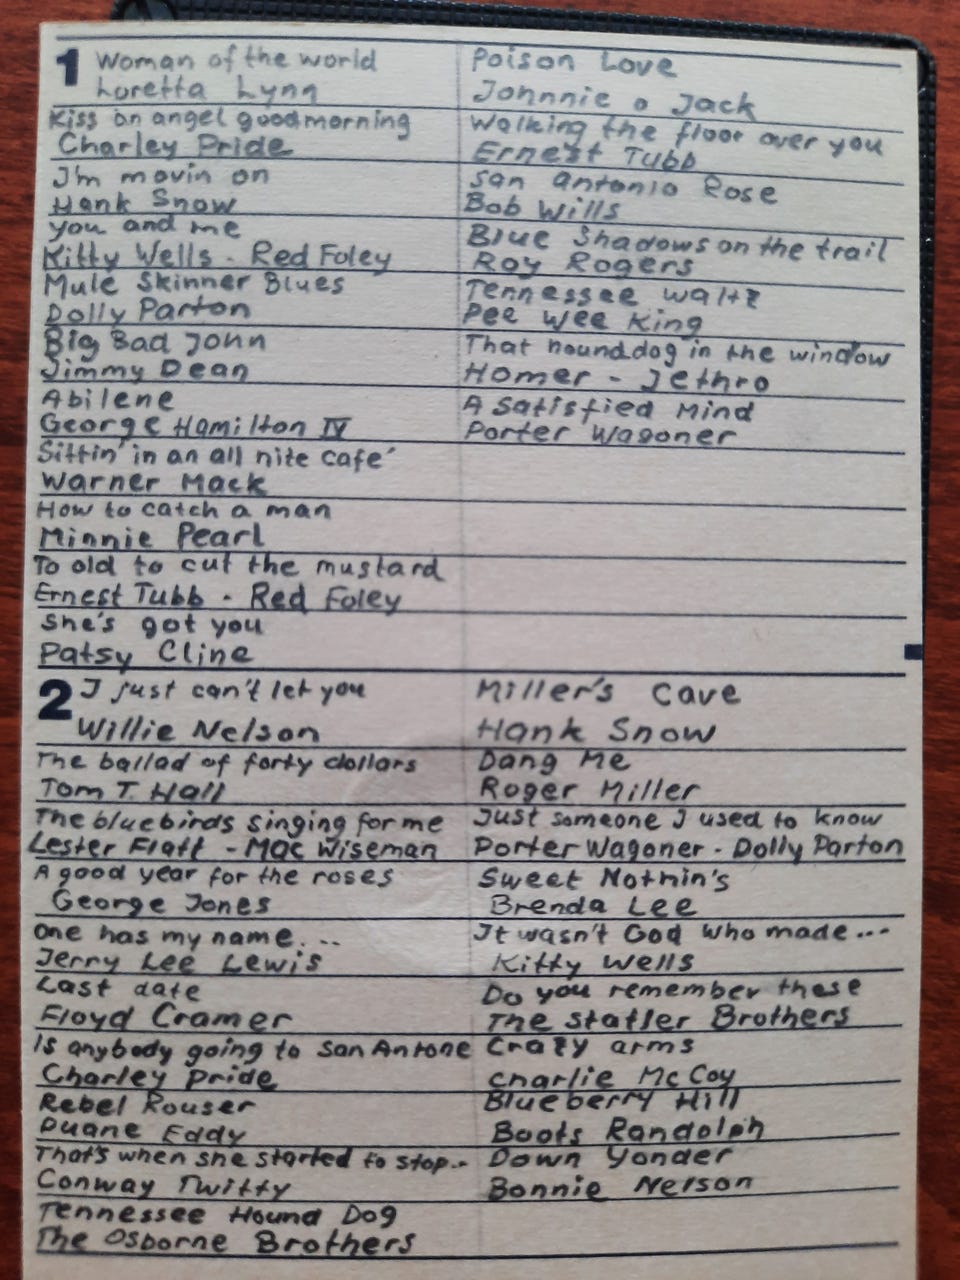 1 Woman of the world
Loretta Lynn
Kiss an angel goodmorning
Charley Pride
I'm movin on
Hank Snow
you and me
Kitty Wells - Red Foley
Mule Skinner Blues
Dolly Parton
Big Bad John
Jimmy Dean
Abilene
George Hamilton IV
Sittin' in an all nite cafe'
Warner Mack
How to catch a man
Minnie Pearl
To old to cut the mustard
Ernest Tubb - Red Foley
She's got you
Patsy Cline
Poison Love
Johnnie o Jack
Walking the floor over you
Ernest Tubb
San Antonio Rose
Bob Wills
Blue Shadows on the trail
Roy Rogers
Tennessee waltz
Pee Wee King
That hounddog in the window
Homer - Jethro
A Satisfied Mind
Porter Wagoner
2 I just can't let you
Willie Nelson
The ballad of forty dollars
Tom T. Hall
The bluebirds singing for me
Lester Flatt - Mac Wiseman
A good year for the roses
George Jones
One has my name....
Jerry Lee Lewis
Last date
Floyd Cramer
Is anybody going to San Antone
Charley Pride
Rebel Rouser
Duane Eddy
That's when she started to stop..
Conway Twitty
Tennessee Hound Dog
The Osborne Brothers
Miller's Cave
Hank Snow
Dang Me
Roger Miller
Just someone I used to know
Porter Wagoner - Dolly Parton
Sweet Nothin's
Brenda Lee
It wasn't God who made...
Kitty Wells
Do you remember these
The Statler Brothers
Crazy arms
Charlie McCoy
Blueberry Hill
Boots Randolph
Down Yonder
Bonnie Nelson